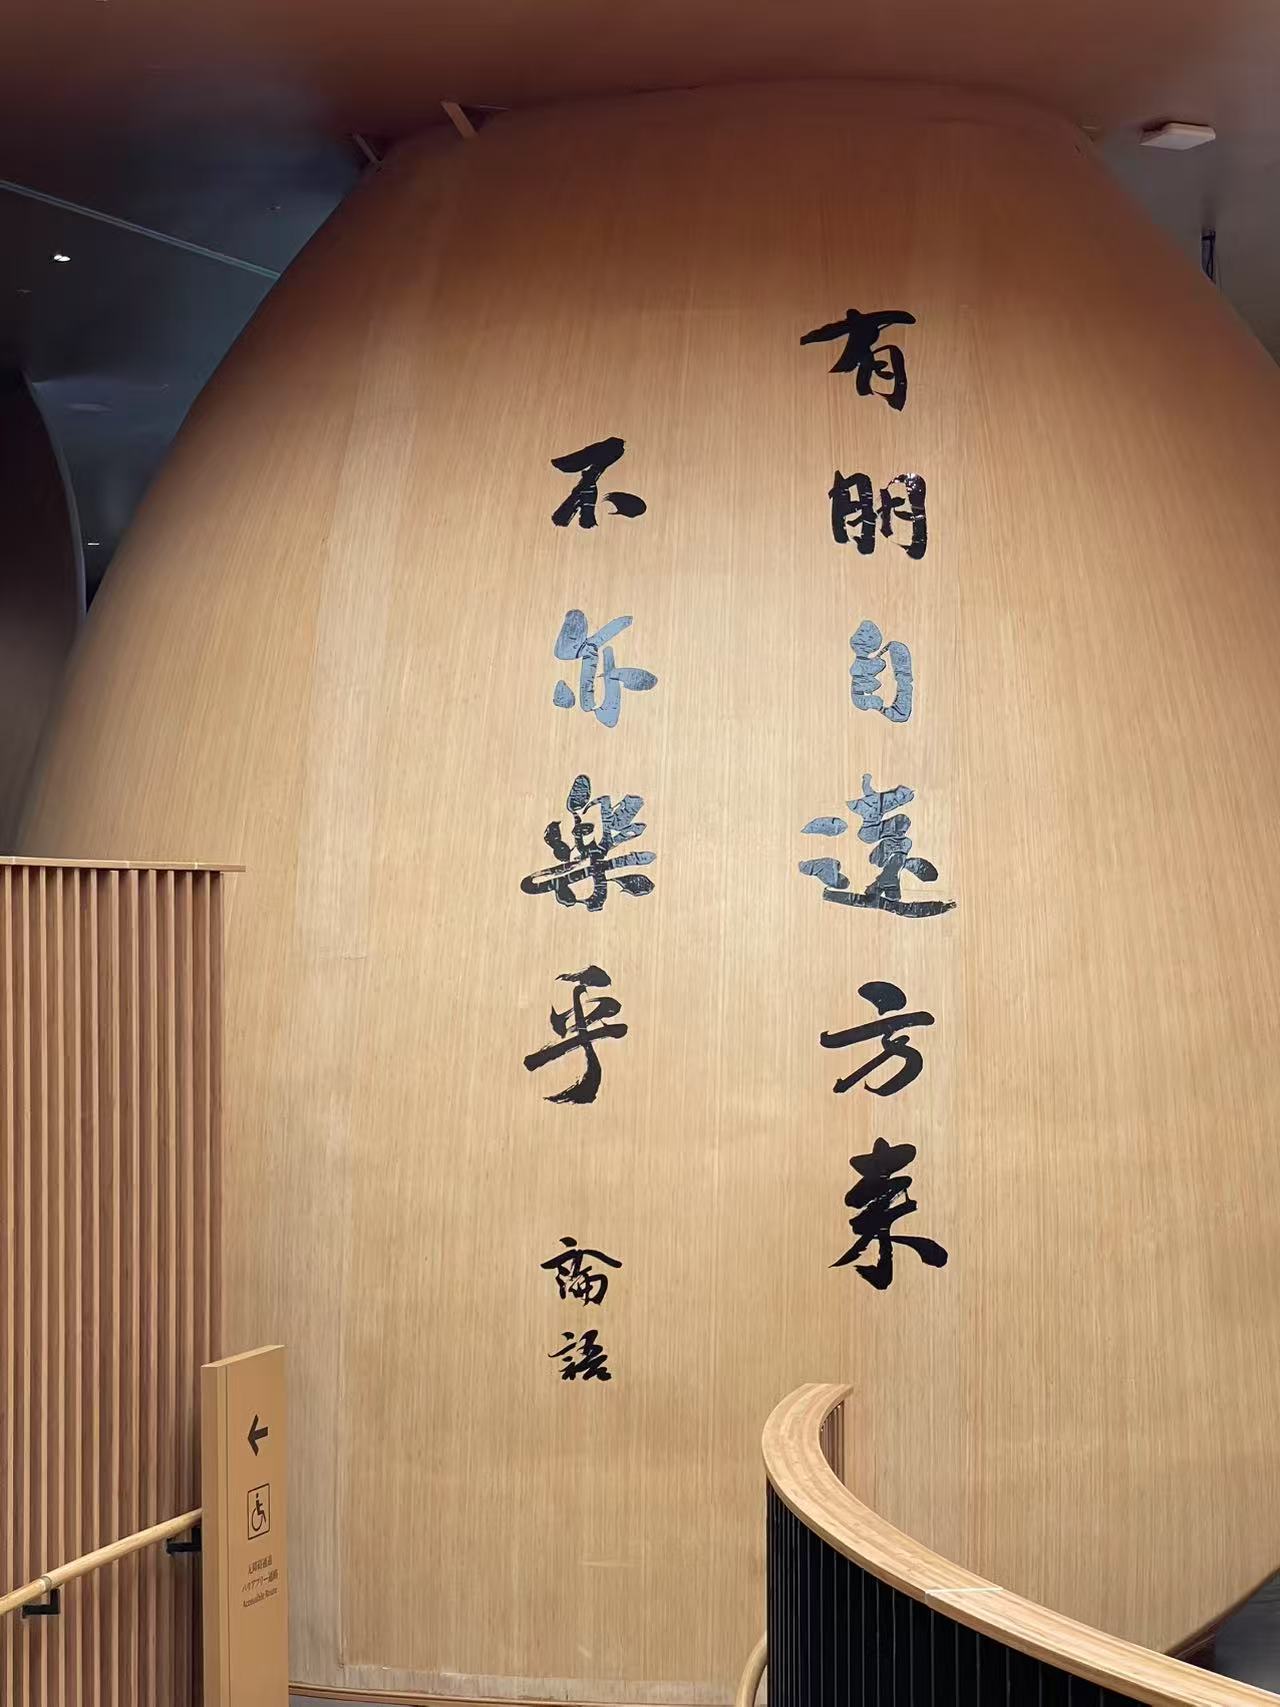 有朋自遠方来
不亦樂乎
論語
无障碍通道
バリアフリー通路
Accessible Route